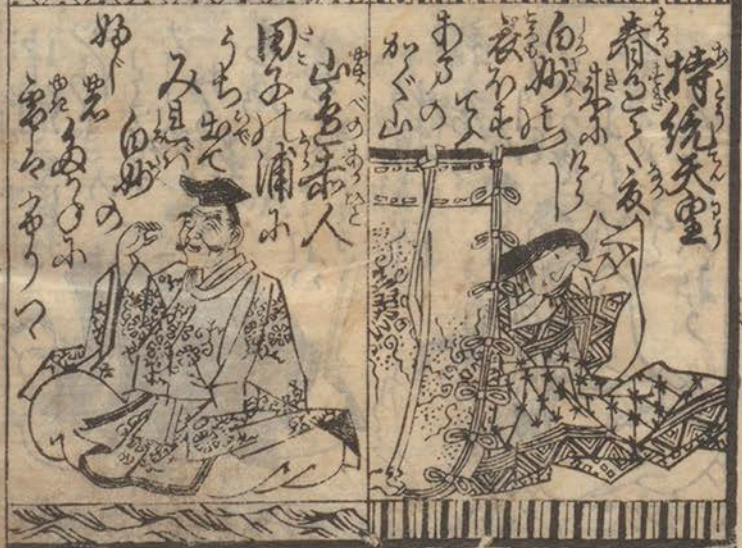 持統天皇
春過て夏
来にけらし
白妙の
衣ほす
てふ
あまの
かぐ山
山邊赤人
田子の浦に
うち出て
みれば
白妙の
婦じの
たかねに
雪はふりつゝ